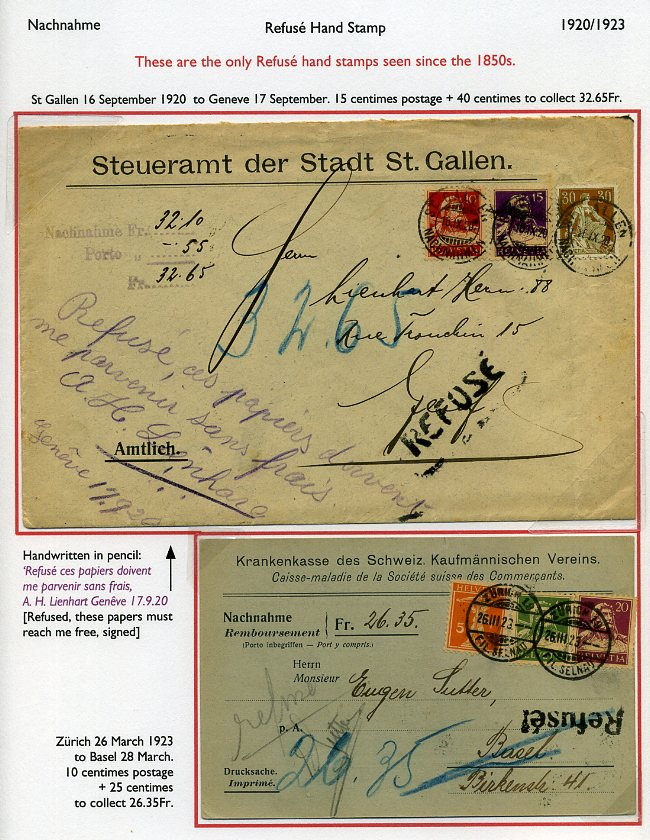 Nachnahme
Refusé Hand Stamp
1920/1923
These are the only Refusé hand stamps seen since the 1850s.
St Gallen 16 September 1920 to Geneve 17 September. 15 centimes postage + 40 centimes to collect 32.65Fr.
Steueramt der Stadt St. Gallen.
10
15
30 30
Nachnahme Fr. 32.10
Porto " -.55
Fr. 32.65
Herrn
Lienhart Herm. 88
Rue Tronchin 15
Genf
32.65
REFUSÉ
Refusé, ces papiers doivent
me parvenir sans frais
A. H. Lienhart
Genêve 17.9.20
Amtlich.
Handwritten in pencil:
'Refusé ces papiers doivent
me parvenir sans frais,
A. H. Lienhart Genêve 17.9.20
[Refused, these papers must
reach me free, signed]
Krankenkasse des Schweiz. Kaufmännischen Vereins.
Caisse-maladie de la Société suisse des Commerçants.
Nachnahme
Remboursement
Fr. 26.35.
(Porto inbegriffen — Port y compris.)
HELVETIA
5
20
HELVETIA
26.III.23
FIL. SELNAU
26.III.23
FIL. SELNAU
Herrn
Monsieur
Eugen Sutter,
Refusé!
p. A.
Basel.
Birkenstr. 41.
26.35
Drucksache.
Imprimé.
Zürich 26 March 1923
to Basel 28 March.
10 centimes postage
+ 25 centimes
to collect 26.35Fr.